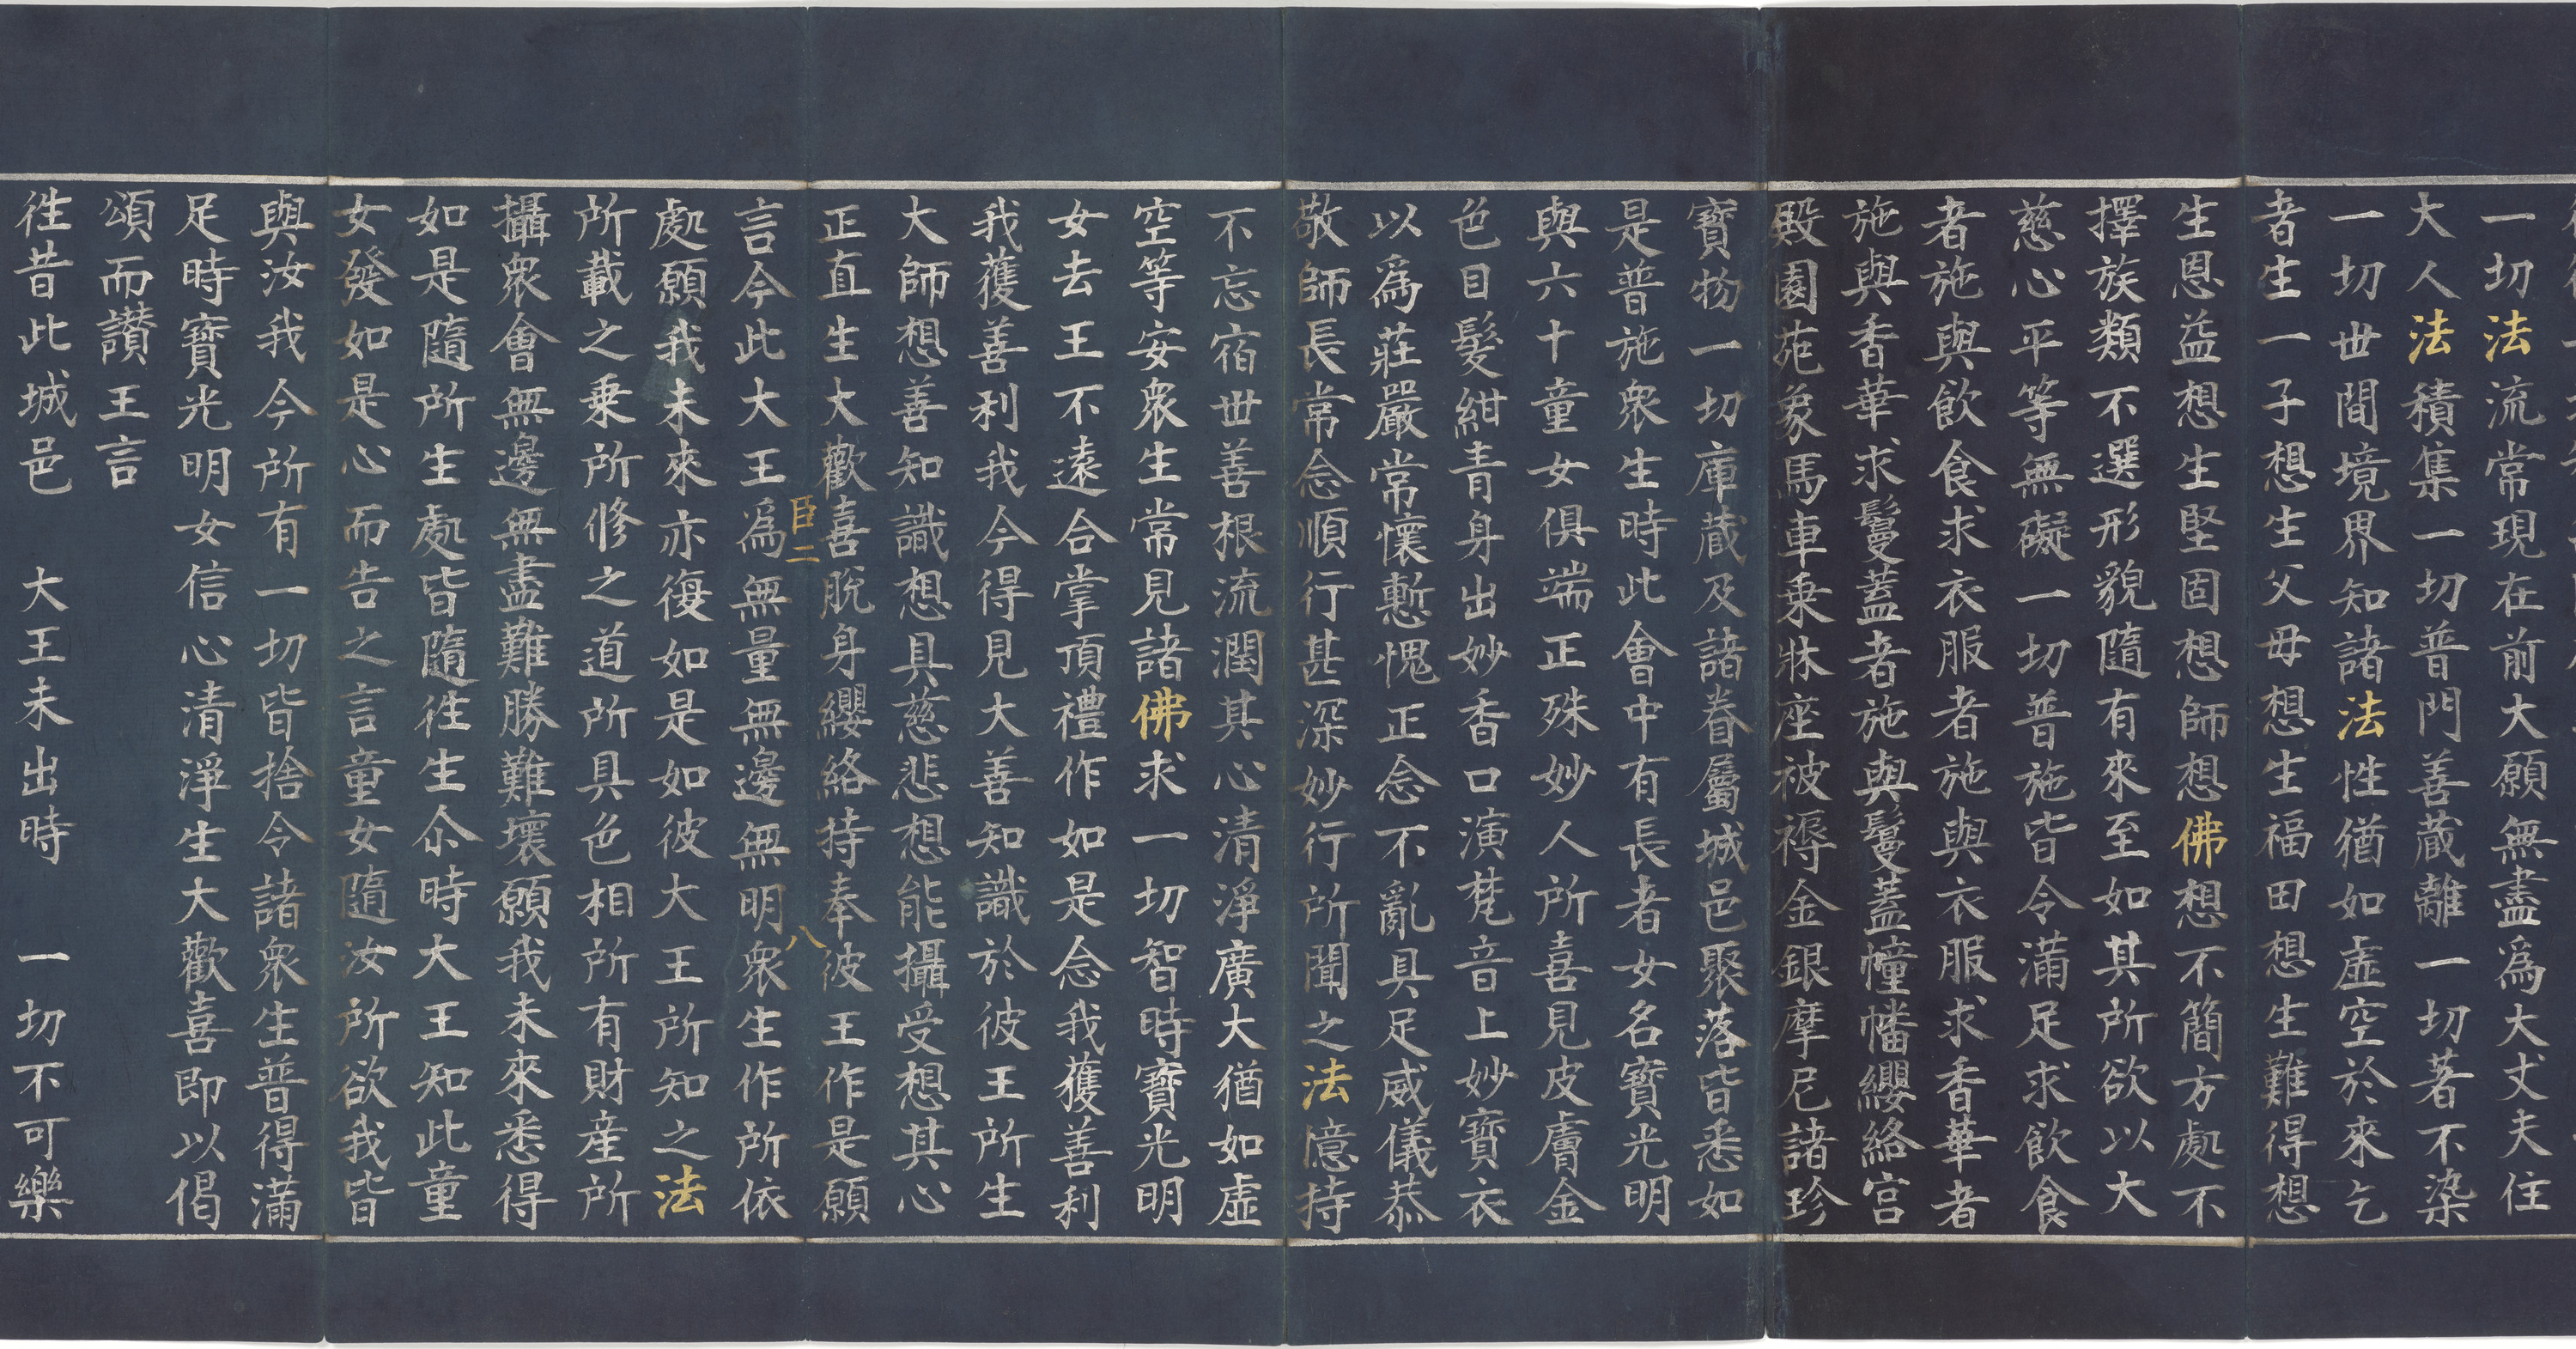 一切法流常現在前大願無盡爲大丈夫住
大人法積集一切普門善蔵離一切著不染
一切世間境界知諸法性猶如虛空於來乞
者生一子想生父母想生福田想生難得想
生恩益想生堅固想師想佛想不簡方處不
擇族類不選形貌隨有來至如其所欲以大
慈心平等無礙一切普施皆令滿足求飲食
者施與飲食求衣服者施與衣服求香華者
施與香華求鬘蓋者施與鬘蓋幢幡纓絡宮
殿園苑象馬車乗牀座被褥金銀摩尼諸珍
寶物一切庫蔵及諸眷屬城邑聚落皆悉如
是普施衆生時此會中有長者女名寶光明
與六十童女俱端正殊妙人所喜見皮膚金
色目髮紺青身出妙香口演梵音上妙寶衣
以爲莊嚴常懷慙愧正念不亂具足威儀恭
敬師長常念順行甚深妙行所聞之法憶持
不忘宿世善根流潤其心清淨廣大猶如虛
空等安衆生常見諸佛求一切智時寶光明
女去王不遠合掌頂禮作如是念我獲善利
我獲善利我今得見大善知識於彼王所生
大師想善知識想具慈悲想能攝受想其心
正直生大歡喜脫身纓絡持奉彼王作是願
臣二　八
言今此大王爲無量無邊無明衆生作所依
處願我未來亦復如是如彼大王所知之法
所載之乗所修之道所具色相所有財産所
攝衆會無邊無盡難勝難壞願我未來悉得
如是隨所生處皆隨徃生尒時大王知此童
女發如是心而告之言童女隨汝所欲我皆
與汝我今所有一切皆捨令諸衆生普得滿
足時寶光明女信心清淨生大歡喜即以偈
頌而讃王言
徃昔此城邑　大王未出時　一切不可樂